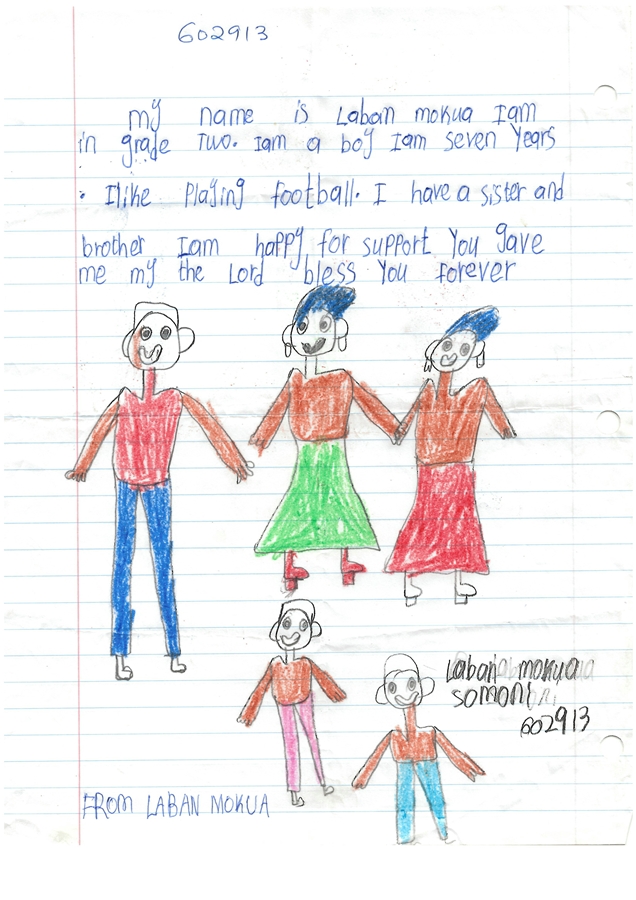 602913
my name is Laban mokua Iam
in grade Two. Iam a boy Iam seven years
. Ilike Playing football. I have a sister and
brother Iam happy for support You gave
me my the Lord bless You forever
Laban mokua
somoni
602913
FROM LABAN MOKUA